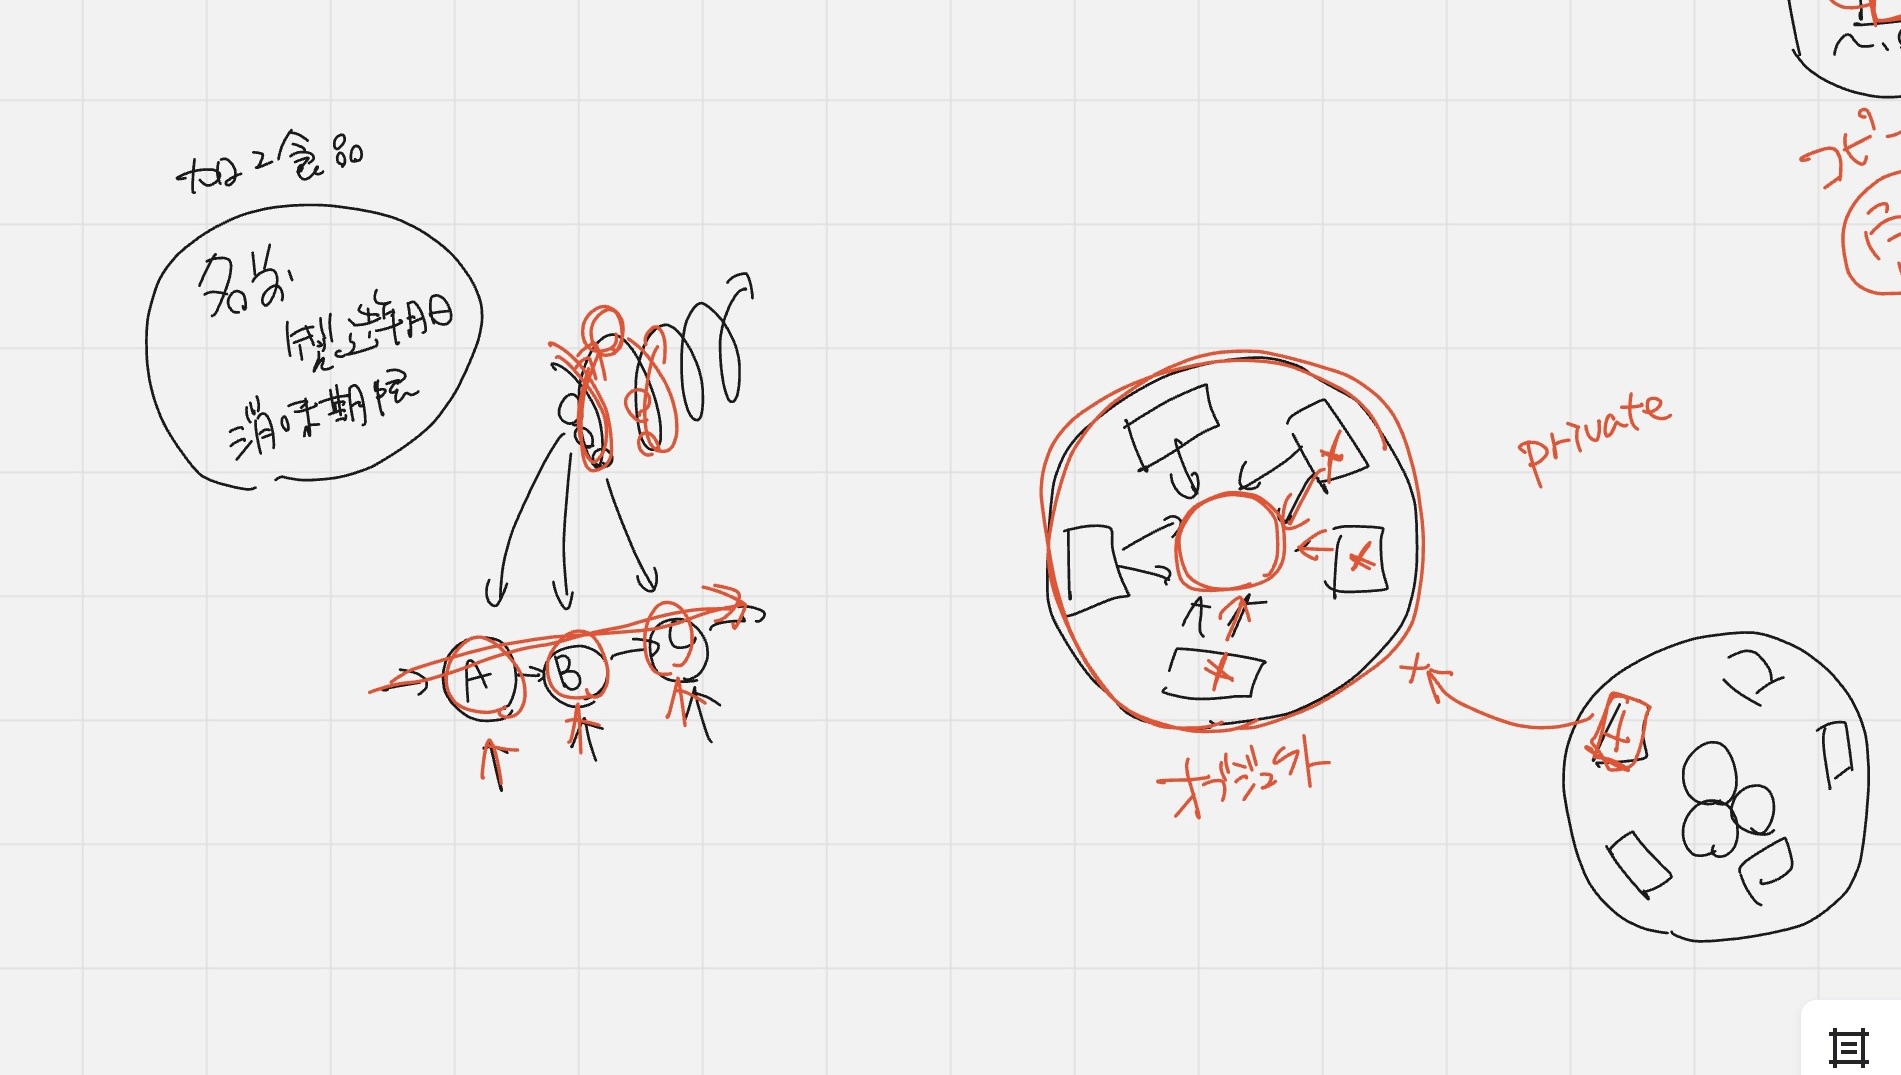 加工食品
名前
製造年月日
消味期限
A
B
C
private
オブジェクト
コピー